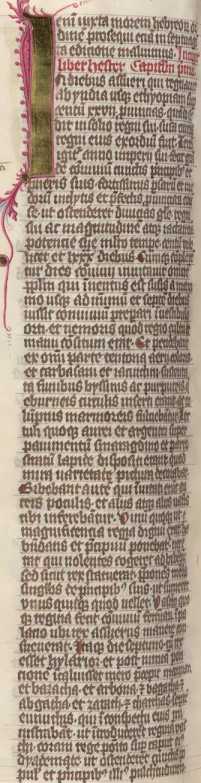 enī iuxta morem hebreoꝝ or
dine prosequi etiā in septuag
ta editione maluimus. Incipit
liber hester Capitulm primū
In diebus assueri qui regnauit
ab yndia usqꝫ ethyopiam sup
centū xxvij puincias. quādo se
dit in solio regni sui susa ciuitas
regni eius exordiū fuit. Tercio
igit᷑ anno imperii sui fecit grā
de conuiuiū cunctis prīcipibꝫ et
pueris suis fortissimis psarū et me
doꝝ inclytis et pfectis puinciaꝝ corā
se ut ostenderet diuicias glorie regni
sui ac magnitudinē atqꝫ iactāciā
potencie sue multo tempe centū vide
licet et lxxx diebus Cumqꝫ complerē
tur dies conuiuii inuitauit omnē
pplm qui inuentus est susis a maxi
mo usqꝫ ad minimū et septē diebus
iussit conuiuiū preparari ī uestibulo
orti et nemoris quod regio cultu et
manu consitum erat. Et pendebant
ex omī parte tentoria aerii coloris
et carbasini et iacinctini sustenta
ta funibus byssinis ac purpureis q
eburneis circulis inserti erant et co
lūpnis marmoreis fulciebant᷑ Lec
tuli quoqꝫ aurei et argentei super
pauimentū smaragdino et pario
stratū lapide dispositi erant quod
mira varietate pictura decorabat
Bibebant autē qui īuitati erāt au
reis poculis. et aliis atqꝫ aliis uasis
cibi inferebātur. Vinū quoqꝫ ut
magnificentia regia dignū erat ha
būdans et pcipuū ponebat᷑. nec
erat qui nolentes cogeret ad bibendū
sed sicut rex statuerat. pponēs mēsis
singulos de prīcipibꝫ suis. ut sumeret
vnusquisqꝫ quod vellet. Vasthi quo
qꝫ regina fecit conuiuiū feminaꝝ ī pa
lacio ubi rex assuerus manere con
sueuerat. Itaqꝫ die septimo cū rex
esset hylarior et post nimiā pota
cionē incaluisset mero precepit maumam
et baracha et arbona et bagatha et
abgatha et zarath et charchas septē
eunuchis. qui ī conspectu eius mī
istrabāt. ut introducerēt reginā vas
thi coram rege posito sup caput eiꝰ
dyademate. ut ostenderet cunctis po
pulis et prīcipibꝫ illiꝰ pulcritudinē